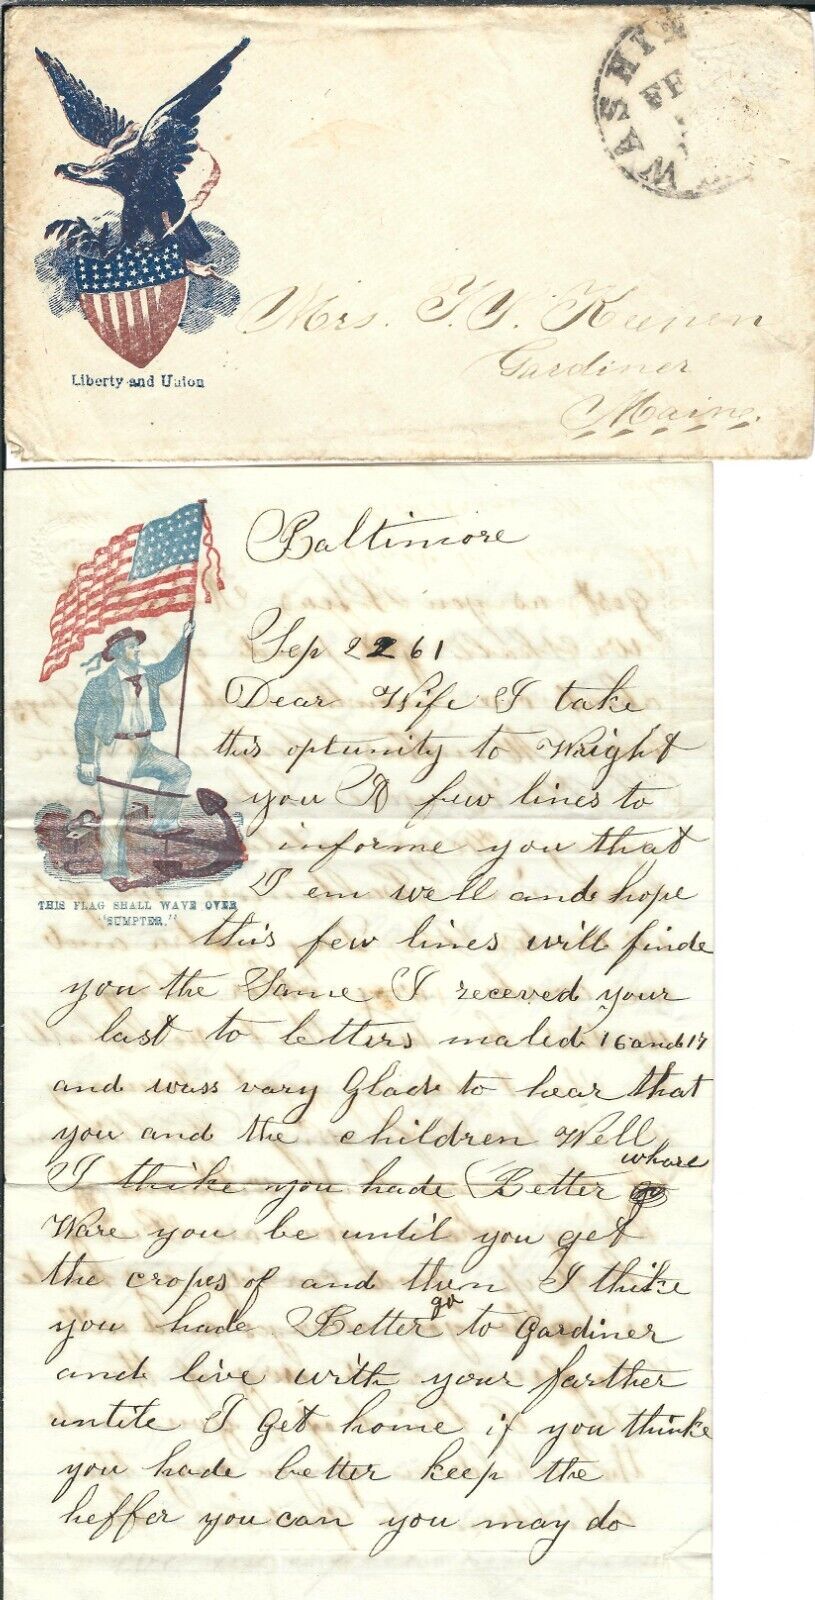 WASHIN
FE
Liberty and Union
Mrs. T. S.
Gardiner
Maine.
Baltimore
Sep 22 61
THIS FLAG SHALL WAVE OVER
"SUMPTER."
Dear Wife I take
this optunity to Wright
you A few lines to
informe you that
I em well and hope
this few lines will finde
you the Same I receved your
last to letters maled 16 and 17
and wass vary Glade to hear that
you and the children Well
I thike you hade Better whare
Ware you be until you get
the cropes of and then I thike
you hade Better go to Gardiner
and live with your farther
untile I Get home if you thinke
you hade better keep the
heffer you can you may do